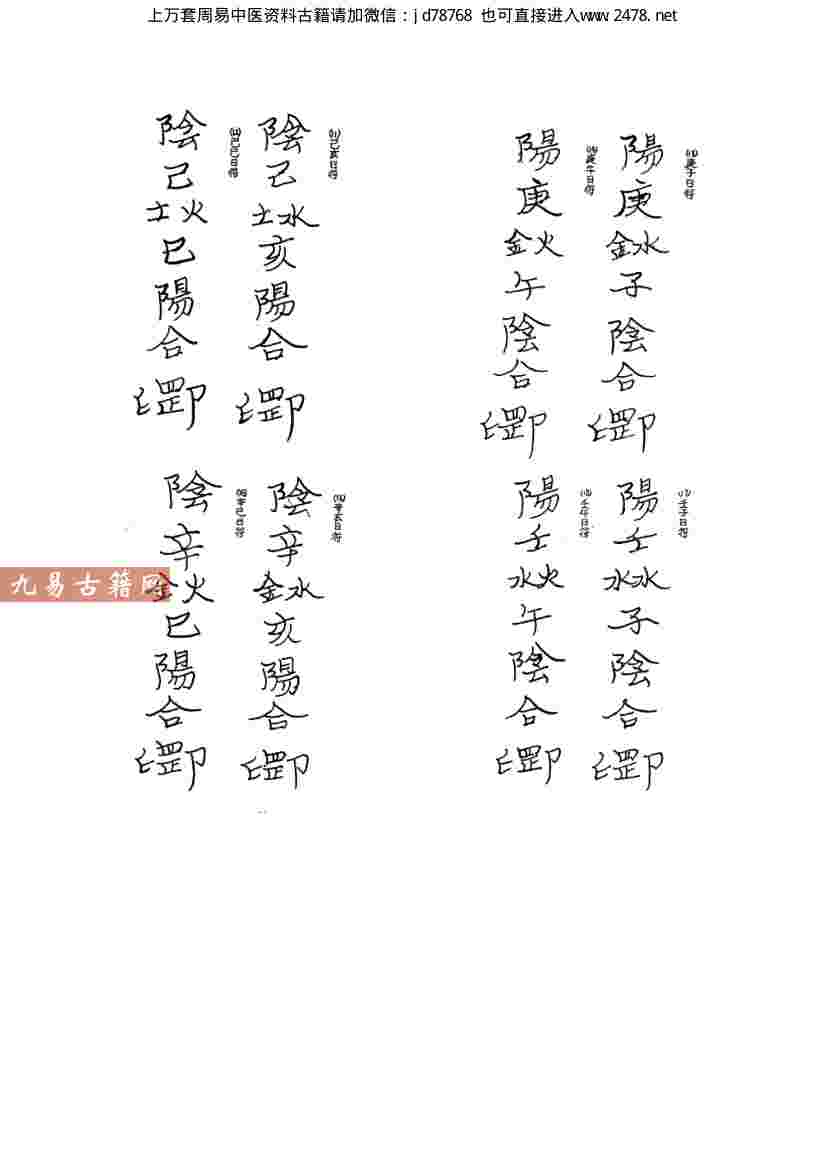 上万套周易中医资料古籍请加微信：jd78768 也可直接进入www.2478.net
庚子日符
陽庚金水子陰合
庚午日符
陽庚金火午陰合
己亥日符
陰己土水亥陽合
己巳日符
陰己土火巳陽合
壬子日符
陽壬水水子陰合
壬午日符
陽壬水火午陰合
辛亥日符
陰辛金水亥陽合
辛巳日符
陰辛金火巳陽合
九易古籍网